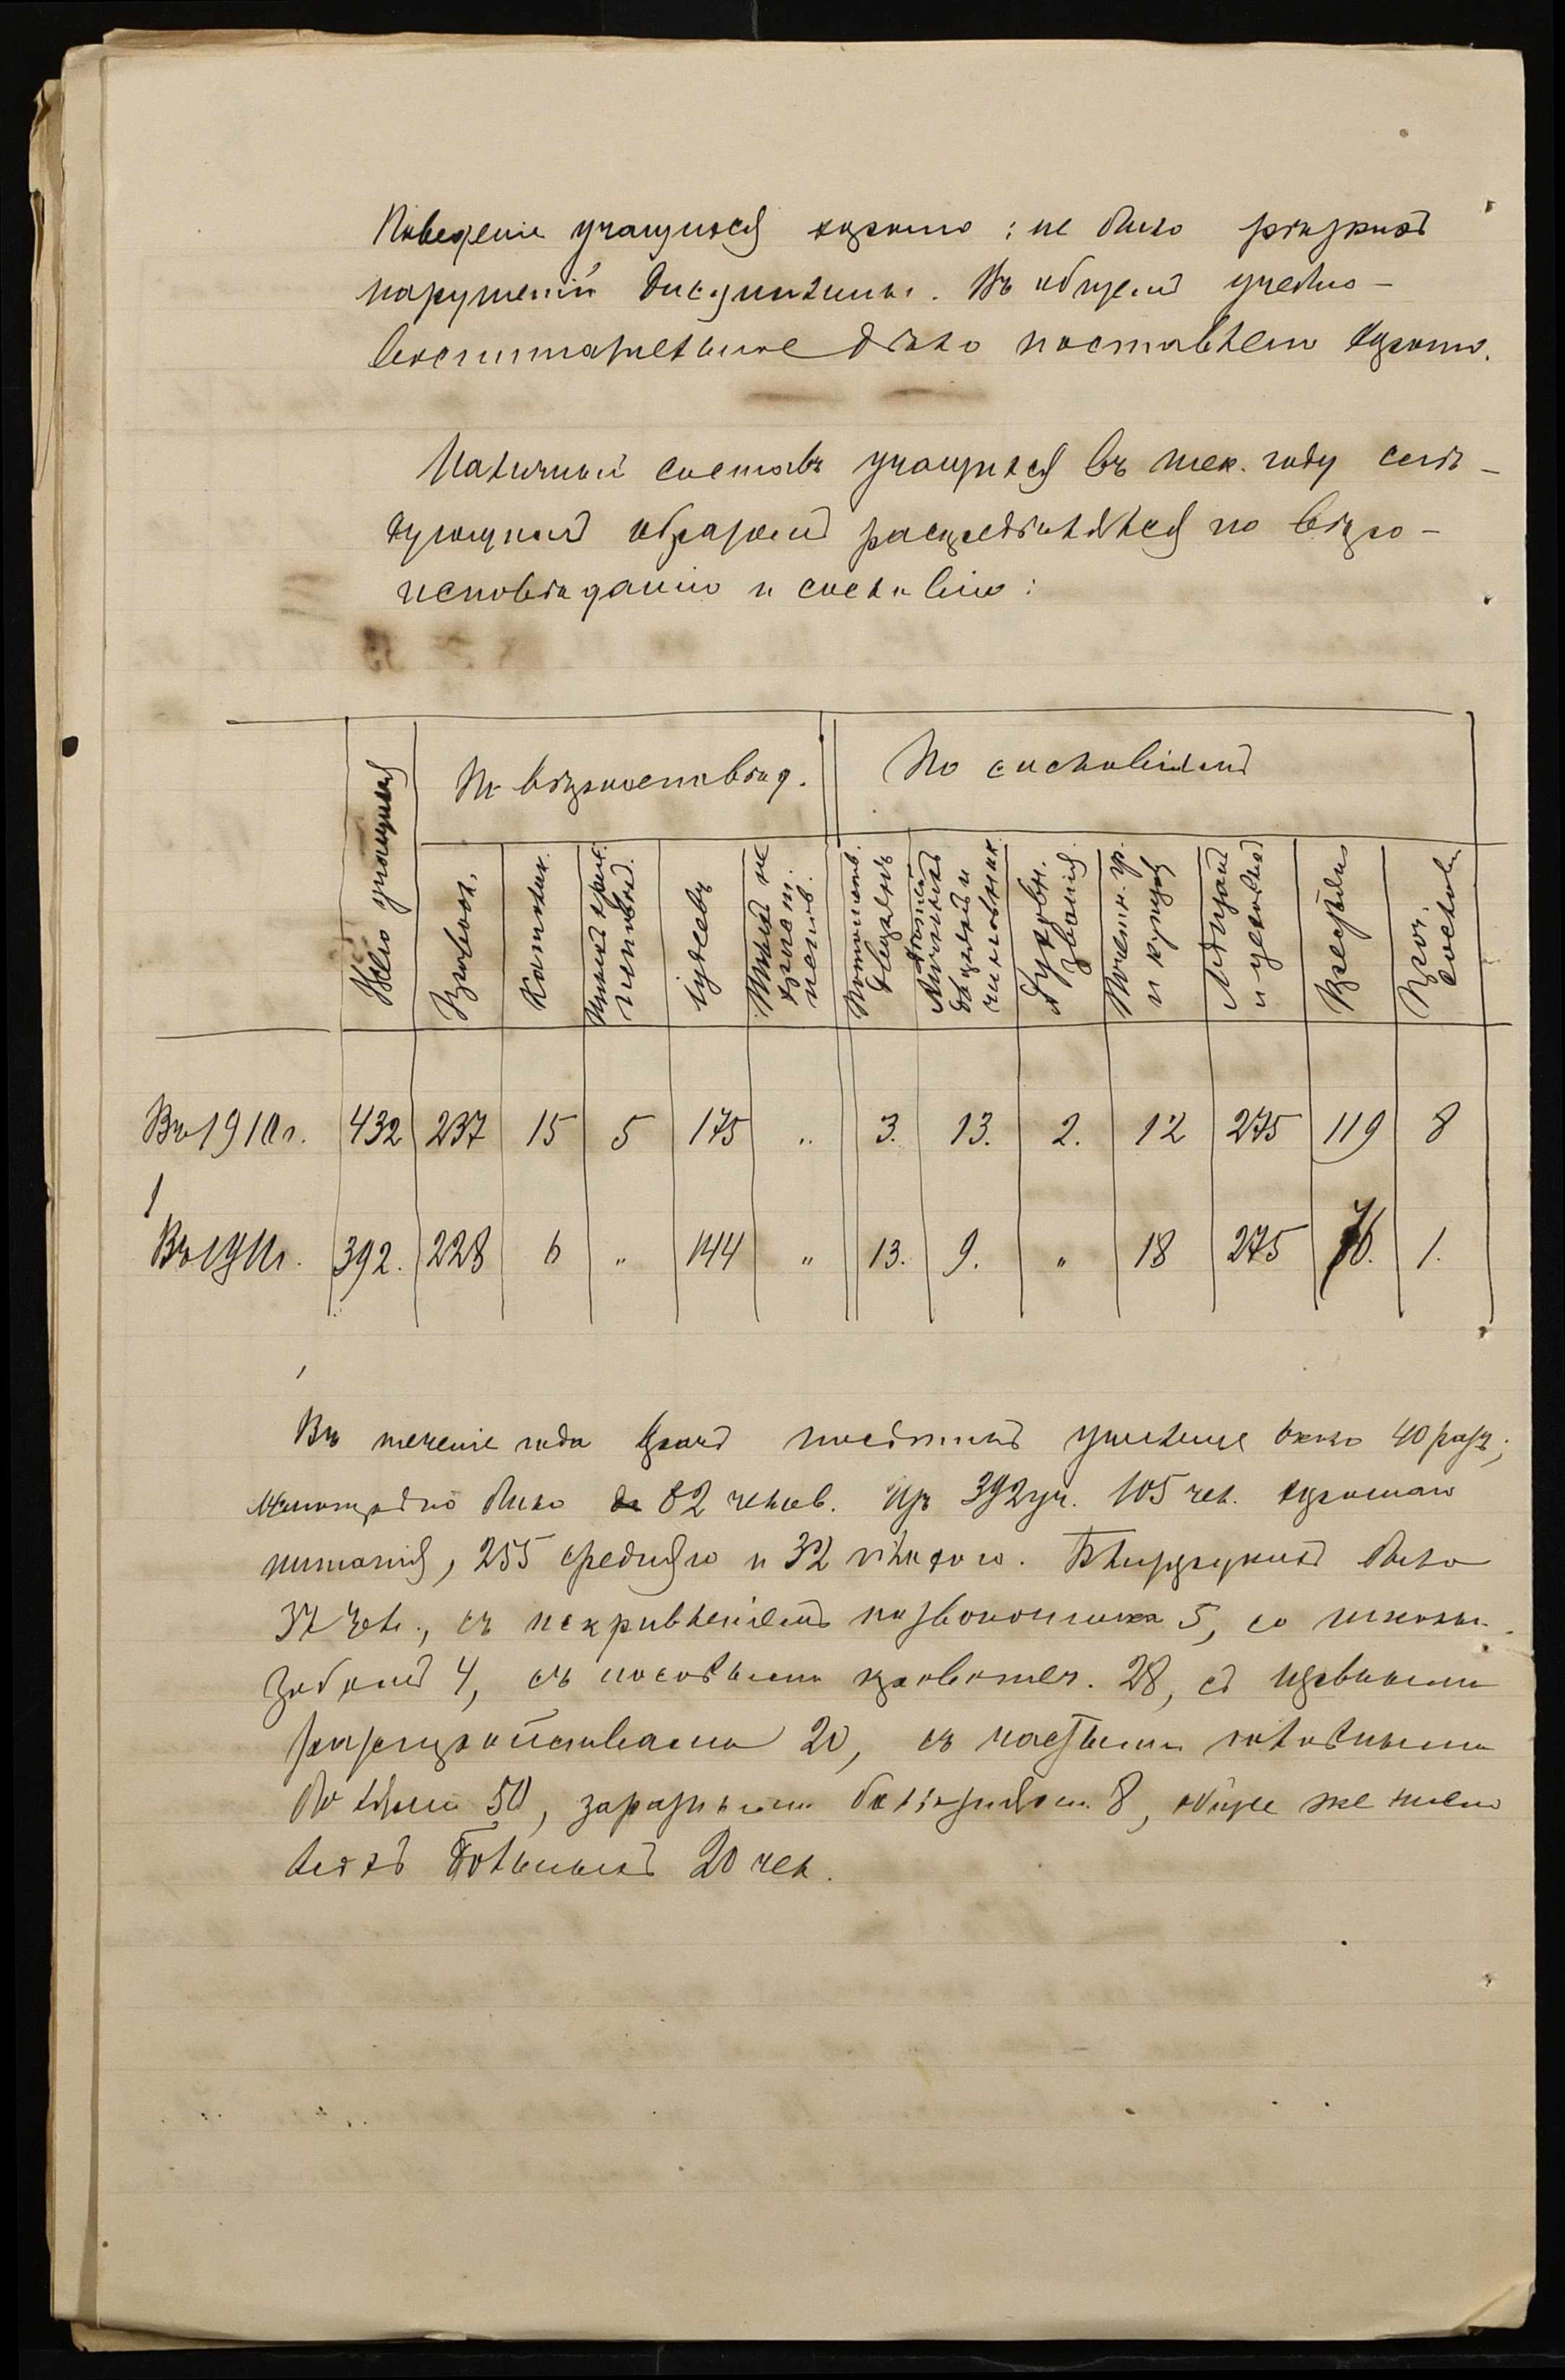 Поведеніе учащихся хорошо: не было рѣзкихъ
нарушеній дисциплины. Въ общемъ учебно-
воспитательное дѣло поставлено хорошо.
Наличный составъ учащихся въ тек. году слѣ-
дующимъ образомъ распредѣлялся по вѣро-
исповѣданію и сословію:
Число учащихся По вѣроисповѣд. По сословіямъ
Правосл. Католик. Иныхъ христ. исповѣд. Іудеевъ Иныхъ не христ. испов. Потомств. дворянъ Дѣтей личныхъ дворянъ и чиновник. Духовн. званія Почетн. гр. и купцовъ Мѣщанъ и цеховыхъ Крестьянъ Проч. сослов.
Въ 1910 г. 432 237 15 5 175 „ 3. 13. 2. 12 275 119 8
Въ 1911 г. 392. 228 6 „ 144 „ 13. 9. „ 18 275 76. 1.
Въ теченіе года врачъ посѣтилъ училище около 40 разъ;
было 82 челов. Изъ 392 уч. 105 чел. хорошаго
питанія, 255 средняго и 32 плохого. Близорукихъ было
37 чел., съ искривленіемъ позвоночника 5, со школьн.
зобомъ 4, съ носовыми кровотеч. 28, съ нервными
разстройствами 20, съ частыми головными
болями 50, заразными болѣзнями 8, общее же число
всѣхъ больныхъ 20 чел.